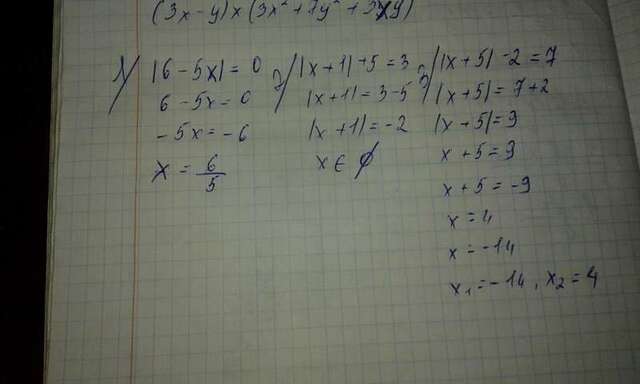 (3x-y)x(3x²+7y²+3xy)
1) |6-5x|=0
6-5x=0
-5x=-6
x=6/5
2) |x+1|+5=3
|x+1|=3-5
|x+1|=-2
x∈∅
3) |x+5|-2=7
|x+5|=7+2
|x+5|=9
x+5=9
x+5=-9
x=4
x=-14
x₁=-14, x₂=4